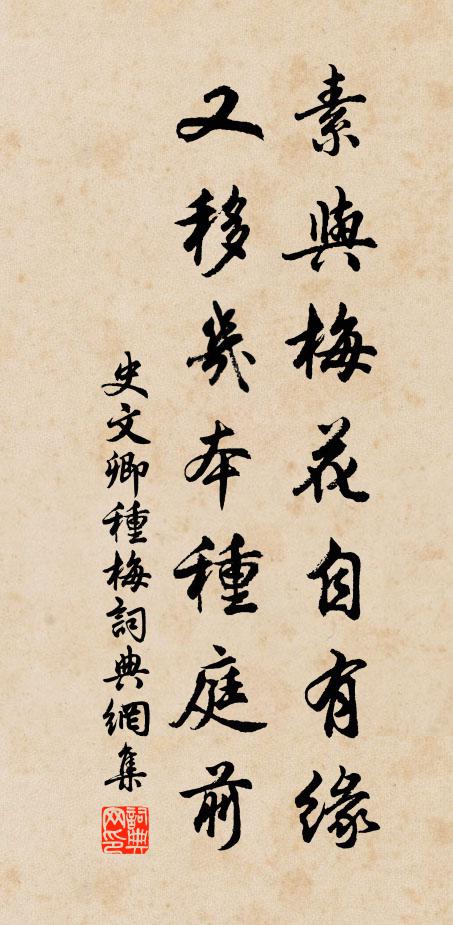 素與梅花自有緣
又移幾本種庭前
史文卿種梅詞典網集
詞典
网印